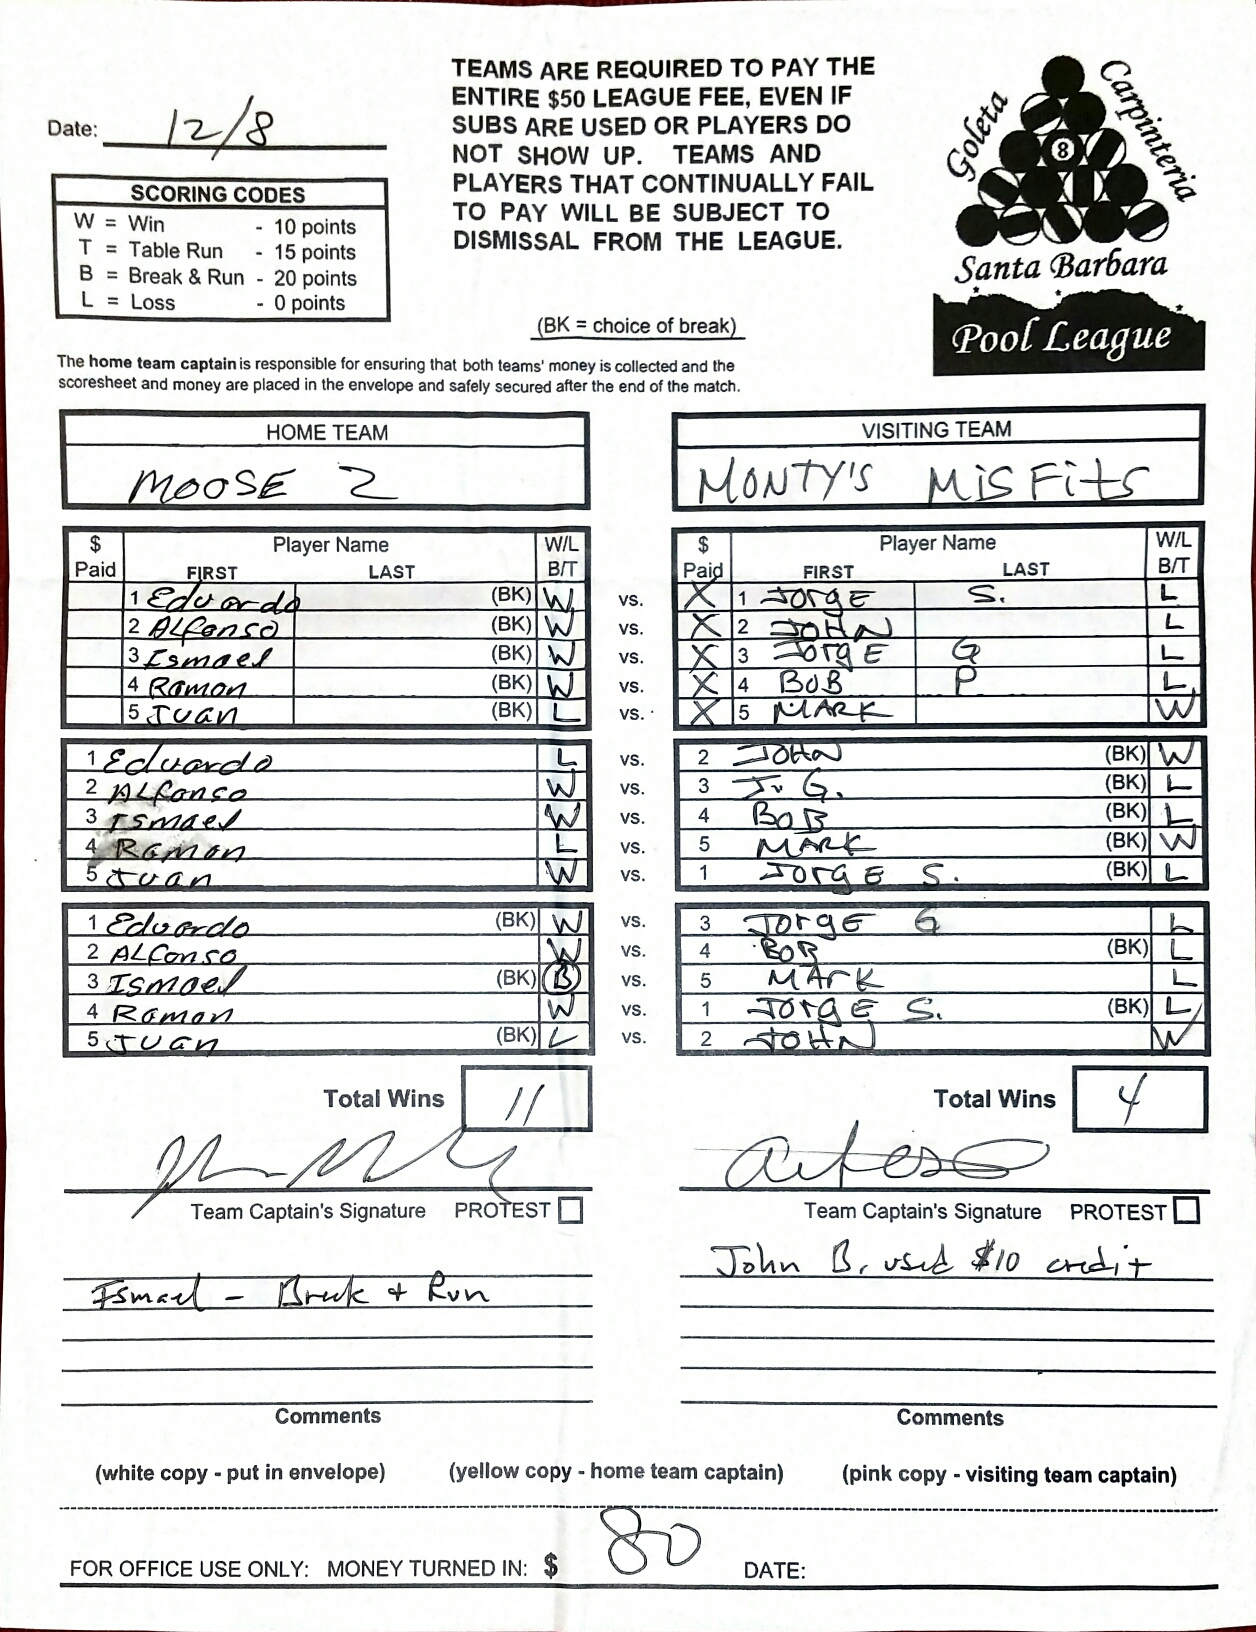 Date: 12/8
TEAMS ARE REQUIRED TO PAY THE
ENTIRE $50 LEAGUE FEE, EVEN IF
SUBS ARE USED OR PLAYERS DO
NOT SHOW UP. TEAMS AND
PLAYERS THAT CONTINUALLY FAIL
TO PAY WILL BE SUBJECT TO
DISMISSAL FROM THE LEAGUE.
Goleta
8
Carpinteria
Santa Barbara
Pool League
SCORING CODES
W = Win - 10 points
T = Table Run - 15 points
B = Break & Run - 20 points
L = Loss - 0 points
(BK = choice of break)
The home team captain is responsible for ensuring that both teams' money is collected and the
scoresheet and money are placed in the envelope and safely secured after the end of the match.
HOME TEAM VISITING TEAM
MOOSE 2 MONTY'S MISFITS
$ Player Name W/L $ Player Name W/L
Paid FIRST LAST B/T Paid FIRST LAST B/T
1 Eduardo (BK) W vs. X 1 JORGE S. L
2 ALfonso (BK) W vs. X 2 JOHN L
3 Ismael (BK) W vs. X 3 JORGE G L
4 Ramon (BK) W vs. X 4 BOB P L
5 Juan (BK) L vs. X 5 MARK W
1 Eduardo L vs. 2 JOHN (BK) W
2 ALfonso W vs. 3 J. G. (BK) L
3 Ismael W vs. 4 BOB (BK) L
4 Ramon L vs. 5 MARK (BK) W
5 Juan W vs. 1 JORGE S. (BK) L
1 Eduardo (BK) W vs. 3 JORGE G L
2 ALfonso W vs. 4 BOB (BK) L
3 Ismael (BK) B vs. 5 MARK L
4 Ramon W vs. 1 JORGE S. (BK) L
5 Juan (BK) L vs. 2 JOHN W
Total Wins 11 Total Wins 4
Team Captain's Signature PROTEST Team Captain's Signature PROTEST
John B. used $10 credit
Ismael - Break + Run
Comments Comments
(white copy - put in envelope) (yellow copy - home team captain) (pink copy - visiting team captain)
FOR OFFICE USE ONLY: MONEY TURNED IN: $ 80 DATE: